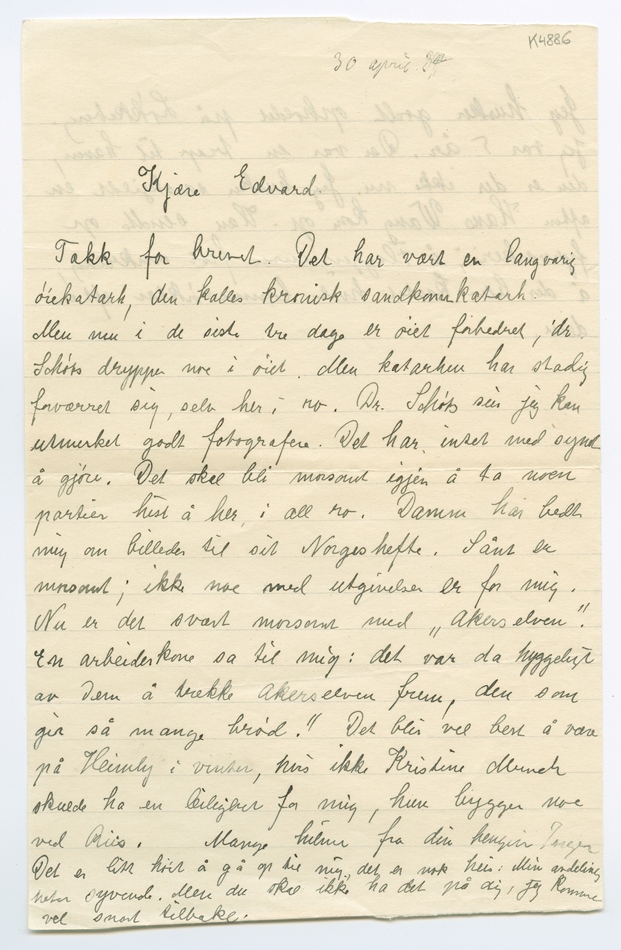 K4886
30 april.
Kjære Edvard
Takk for brevet. Det har vært en langvarig
øiekatarh, den kalles kronisk sandkornkatarh.
Men nu i de siste tre dage er øiet forbedret, dr.
Schøts drypper noe i øiet. Men katarhen har stadig
forværret sig, selv her i ro. Dr. Schøts sier jeg kan
utmerket godt fotografere. Det har intet med synet
å gjøre. Det skal bli morsomt igjen å ta noen
partier hist å her, i all ro. Damm har bedt
mig om billeder til sit Norgeshefte. Sånt er
morsomt; ikke noe med utgivelser er for mig.
Nu er det svært morsomt med "Akerselven".
En arbeiderkone sa til mig: det var da hyggeligt
av Dem å trække Akerselven frem, den som
gir så mange brød!" Det blir vel best å være
på Heimly i vinter, hvis ikke Kristine Munch
skulde ha en leilighet for mig, hun bygger noe
ved Riis. Mange hilsner fra din hengivn Inger
Det er litt høit å gå op til mig, det er nok heis: Min
syvende. Men du skal ikke ha det på dig, jeg kommer
vel snart tilbake.